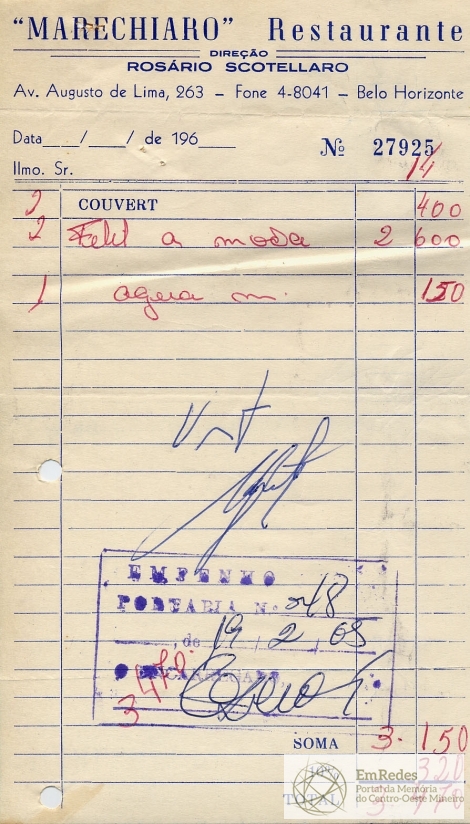 "MARECHIARO" Restaurante
DIREÇÃO
ROSÁRIO SCOTELLARO
Av. Augusto de Lima, 263 – Fone 4-8041 – Belo Horizonte
Data___/___/ de 196___ Nº 27925
Ilmo. Sr. 14
2 COUVERT 400
2 a moda 2 600
1 agua m. 150
EMPENHO
PORTARIA N.º 248
, de 19, 2, 65
3470
SOMA 3.150
10% 320
TOTAL 3.470
EmRedes
Portal da Memória
do Centro-Oeste Mineiro